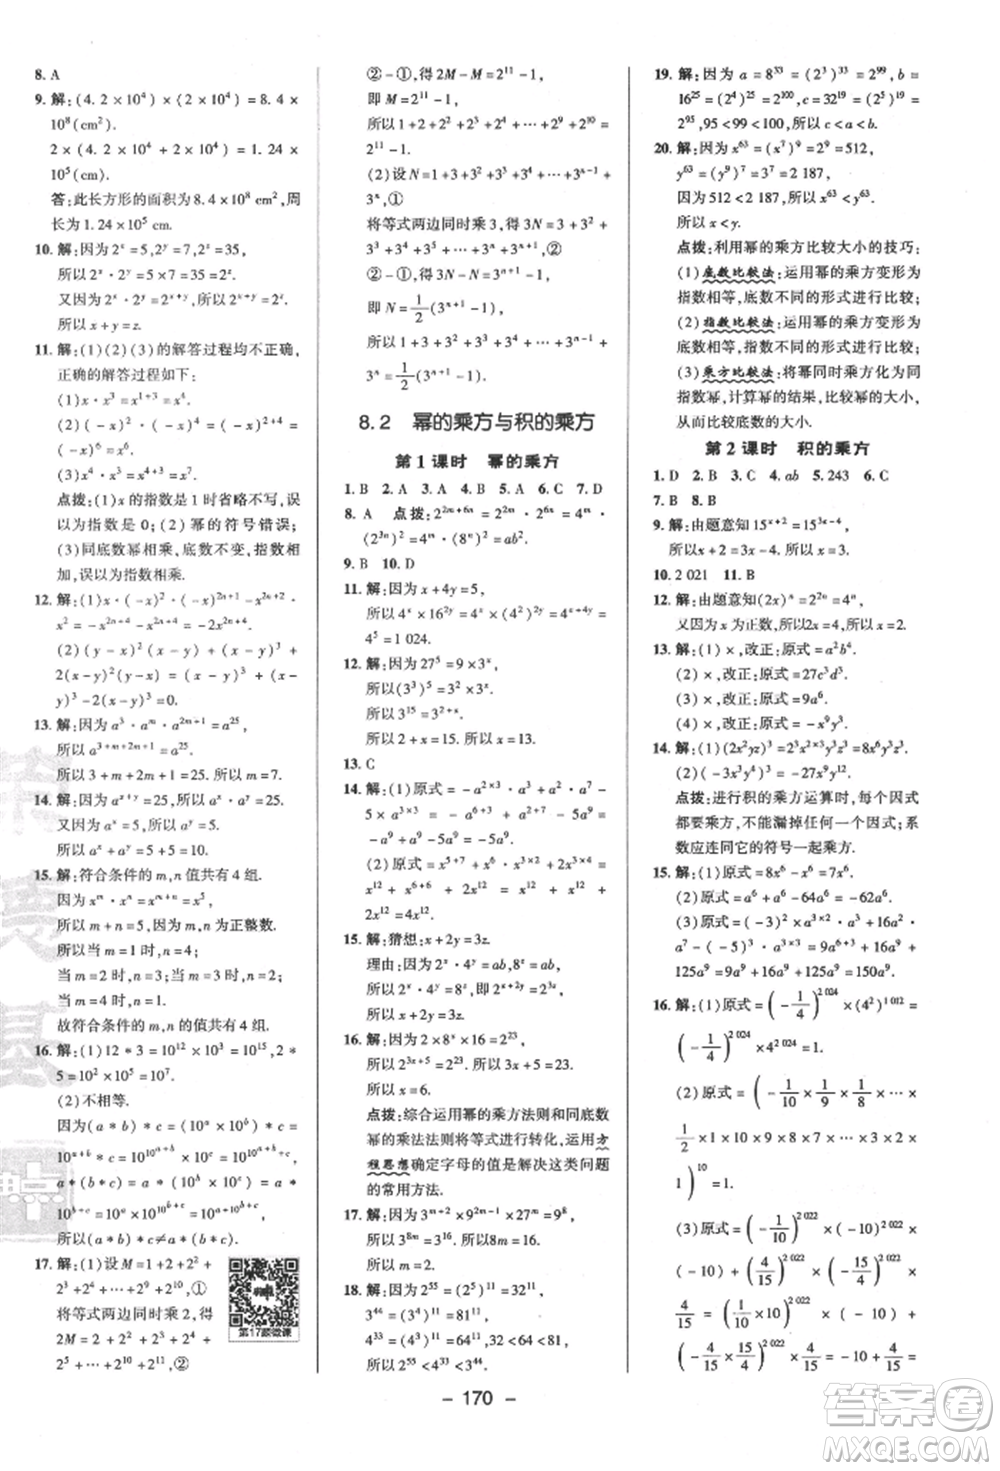 8. A
9. 解:(4.2×10⁴)×(2×10⁴)=8.4×
10⁸(cm²).
2×(4.2×10⁴+2×10⁴)=1.24×
10⁵(cm).
答:此长方形的面积为8.4×10⁸ cm²,周
长为1.24×10⁵ cm.
10. 解:因为2ˣ=5,2ʸ=7,2ᶻ=35,
所以2ˣ·2ʸ=5×7=35=2ᶻ.
又因为2ˣ·2ʸ=2ˣ⁺ʸ,所以2ˣ⁺ʸ=2ᶻ.
所以x+y=z.
11. 解:(1)(2)(3)的解答过程均不正确,
正确的解答过程如下:
(1)x·x³=x¹⁺³=x⁴.
点拨:(1)x的指数是1时省略不写,误
以为指数是0;(2)幂的符号错误;
(3)同底数幂相乘,底数不变,指数相
加,误以为指数相乘.
13. 解:因为a³·aᵐ·a²ᵐ⁺¹=a²⁵,
所以a³⁺ᵐ⁺²ᵐ⁺¹=a²⁵.
所以3+m+2m+1=25,所以m=7.
14. 解:因为aˣ⁺ʸ=25,所以aˣ·aʸ=25.
又因为aˣ=5,所以aʸ=5.
所以aˣ+aʸ=5+5=10.
15. 解:符合条件的m,n值共有4组.
因为xᵐ·xⁿ=xᵐ⁺ⁿ=x⁵,
所以m+n=5,m,n为正整数.
所以当m=1时,n=4;
当m=2时,n=3;当m=3时,n=2;
当m=4时,n=1.
故符合条件的m,n的值共有4组.
16. 解:(1)12*3=10¹²×10³=10¹⁵,2*
5=10²×10⁵=10⁷.
(2)不相等.
所以(a*b)*c≠a*(b*c).
17. 解:(1)设M=1+2+2²+
2³+2⁴+…+2⁹+2¹⁰,①
将等式两边同时乘2,得
2M=2+2²+2³+2⁴+
2⁵+…+2¹⁰+2¹¹,②
第17题微课
②-①,得2M-M=2¹¹-1,
即M=2¹¹-1.
所以1+2+2²+2³+2⁴+…+2⁹+2¹⁰=
2¹¹-1.
(2)设N=1+3+3²+3³+3⁴+…+
3ⁿ,①
将等式两边同时乘3,得3N=3+3²+
3³+3⁴+…+3ⁿ+3ⁿ⁺¹,②
②-①,得3N-N=3ⁿ⁺¹-1,
即N=1/2(3ⁿ⁺¹-1).
所以1+3+3²+3³+3⁴+…+
3ⁿ=1/2(3ⁿ⁺¹-1).
8.2 幂的乘方与积的乘方
第1课时 幂的乘方
1. B 2. A 3. A 4. A 5. A 6. C 7. D
8. A 点拨:2²ᵐ⁺⁶ⁿ=2²ᵐ·2⁶ⁿ=4ᵐ
·(2³ⁿ)²=4ᵐ·(8ⁿ)²=ab².
9. B 10. D
11. 解:因为x+4y=5,
所以4ˣ×16²ʸ=4ˣ×(4²)²ʸ=4ˣ⁺⁴ʸ=
4⁵=1 024.
12. 解:因为27⁵=9×3ˣ,
所以(3³)⁵=3²×3ˣ.
所以3¹⁵=3²⁺ˣ.
所以2+x=15.所以x=13.
13. C
14. 解:(1)原式=-a²ˣ³·a³+a²⁺⁷-
5a³ˣ³=-a⁶·a³+a⁹-5a⁹=
-a⁹+a⁹-5a⁹=-5a⁹.
(2)原式=x⁵⁺⁷+x⁶⁺⁶+2x¹²=
x¹²+x¹²+2x¹²=4x¹².
15. 解:猜想:x+2y=3z.
理由:因为2ˣ=a,4ʸ=b,8ᶻ=ab,
所以2ˣ·4ʸ=8ᶻ,即2ˣ·2²ʸ=2³ᶻ.
所以x+2y=3z.
16. 解:因为2×8ˣ×16=2²³,
所以2³ˣ⁺⁵=2²³.所以3x+5=23.
所以x=6.
点拨:综合运用幂的乘方法则和同底数
幂的乘法法则将等式进行转化,运用方
程思想确定字母的值是解决这类问题
的常用方法.
17. 解:因为3ᵐ⁺²×9²ᵐ⁻¹×27ᵐ=9⁸,
所以3⁸ᵐ=3¹⁶.所以8m=16.
所以m=2.
18. 解:因为2⁵⁵=(2⁵)¹¹=32¹¹,
3⁴⁴=(3⁴)¹¹=81¹¹,
4³³=(4³)¹¹=64¹¹,32<64<81,
所以2⁵⁵<4³³<3⁴⁴.
19. 解:因为a=8³³=(2³)³³=2⁹⁹,b=
16²⁵=(2⁴)²⁵=2¹⁰⁰,c=32¹⁹=(2⁵)¹⁹=
2⁹⁵,95<99<100,所以c<a<b.
20. 解:因为x⁶³=(x⁷)⁹=2⁹=512,
y⁶³=(y⁹)⁷=3⁷=2 187,
因为512<2 187,所以x⁶³<y⁶³.
所以x<y.
点拨:利用幂的乘方比较大小的技巧:
(1)底数比较法:运用幂的乘方变形为
指数相等,底数不同的形式进行比较;
(2)指数比较法:运用幂的乘方变形为
底数相等,指数不同的形式进行比较;
(3)乘方比较法:将幂同时乘方化为同
指数幂,计算幂的大小,通过结果的大小,
比较底数的大小.
第2课时 积的乘方
1. D 2. B 3. C 4. ab 5. 243 6. C
7. B 8. B
9. 解:由题意知15ˣ⁺²=15³ˣ⁻⁴,
所以x+2=3x-4.所以x=3.
10. 2 021 11. B
12. 解:由题意知(2x)ⁿ=2²ⁿ=4ⁿ,
又因为x为正数,所以2x=4,所以x=2.
13. 解:(1)×,改正:原式=a²b⁴.
(2)×,改正:原式=27c³d³.
(3)×,改正:原式=9a⁶.
14. 解:(1)(2x²yz)³=2³x²ˣ³y³z³=8x⁶y³z³.
点拨:进行积的乘方运算时,每个因式
都要乘方,不能漏掉任何一个因式;系
数应连同它的符号一起乘方.
15. 解:(1)原式=8x⁶-7x⁶=x⁶.
(2)原式=a⁶+a⁶-64a⁶=-62a⁶.
125a⁹=9a⁹+16a⁹-125a⁹=-100a⁹.
16. 解:(1)原式=(-1/4)²⁰²⁴×(4²)¹⁰¹²=
(-1/4)²⁰²⁴×4²⁰²⁴=1.
(2)原式=(-1/10×1/9×1/8×…×
1/2×1×10×9×8×…×2×
1)¹⁰=1.
- 170 -
答案圈
MXQE.COM